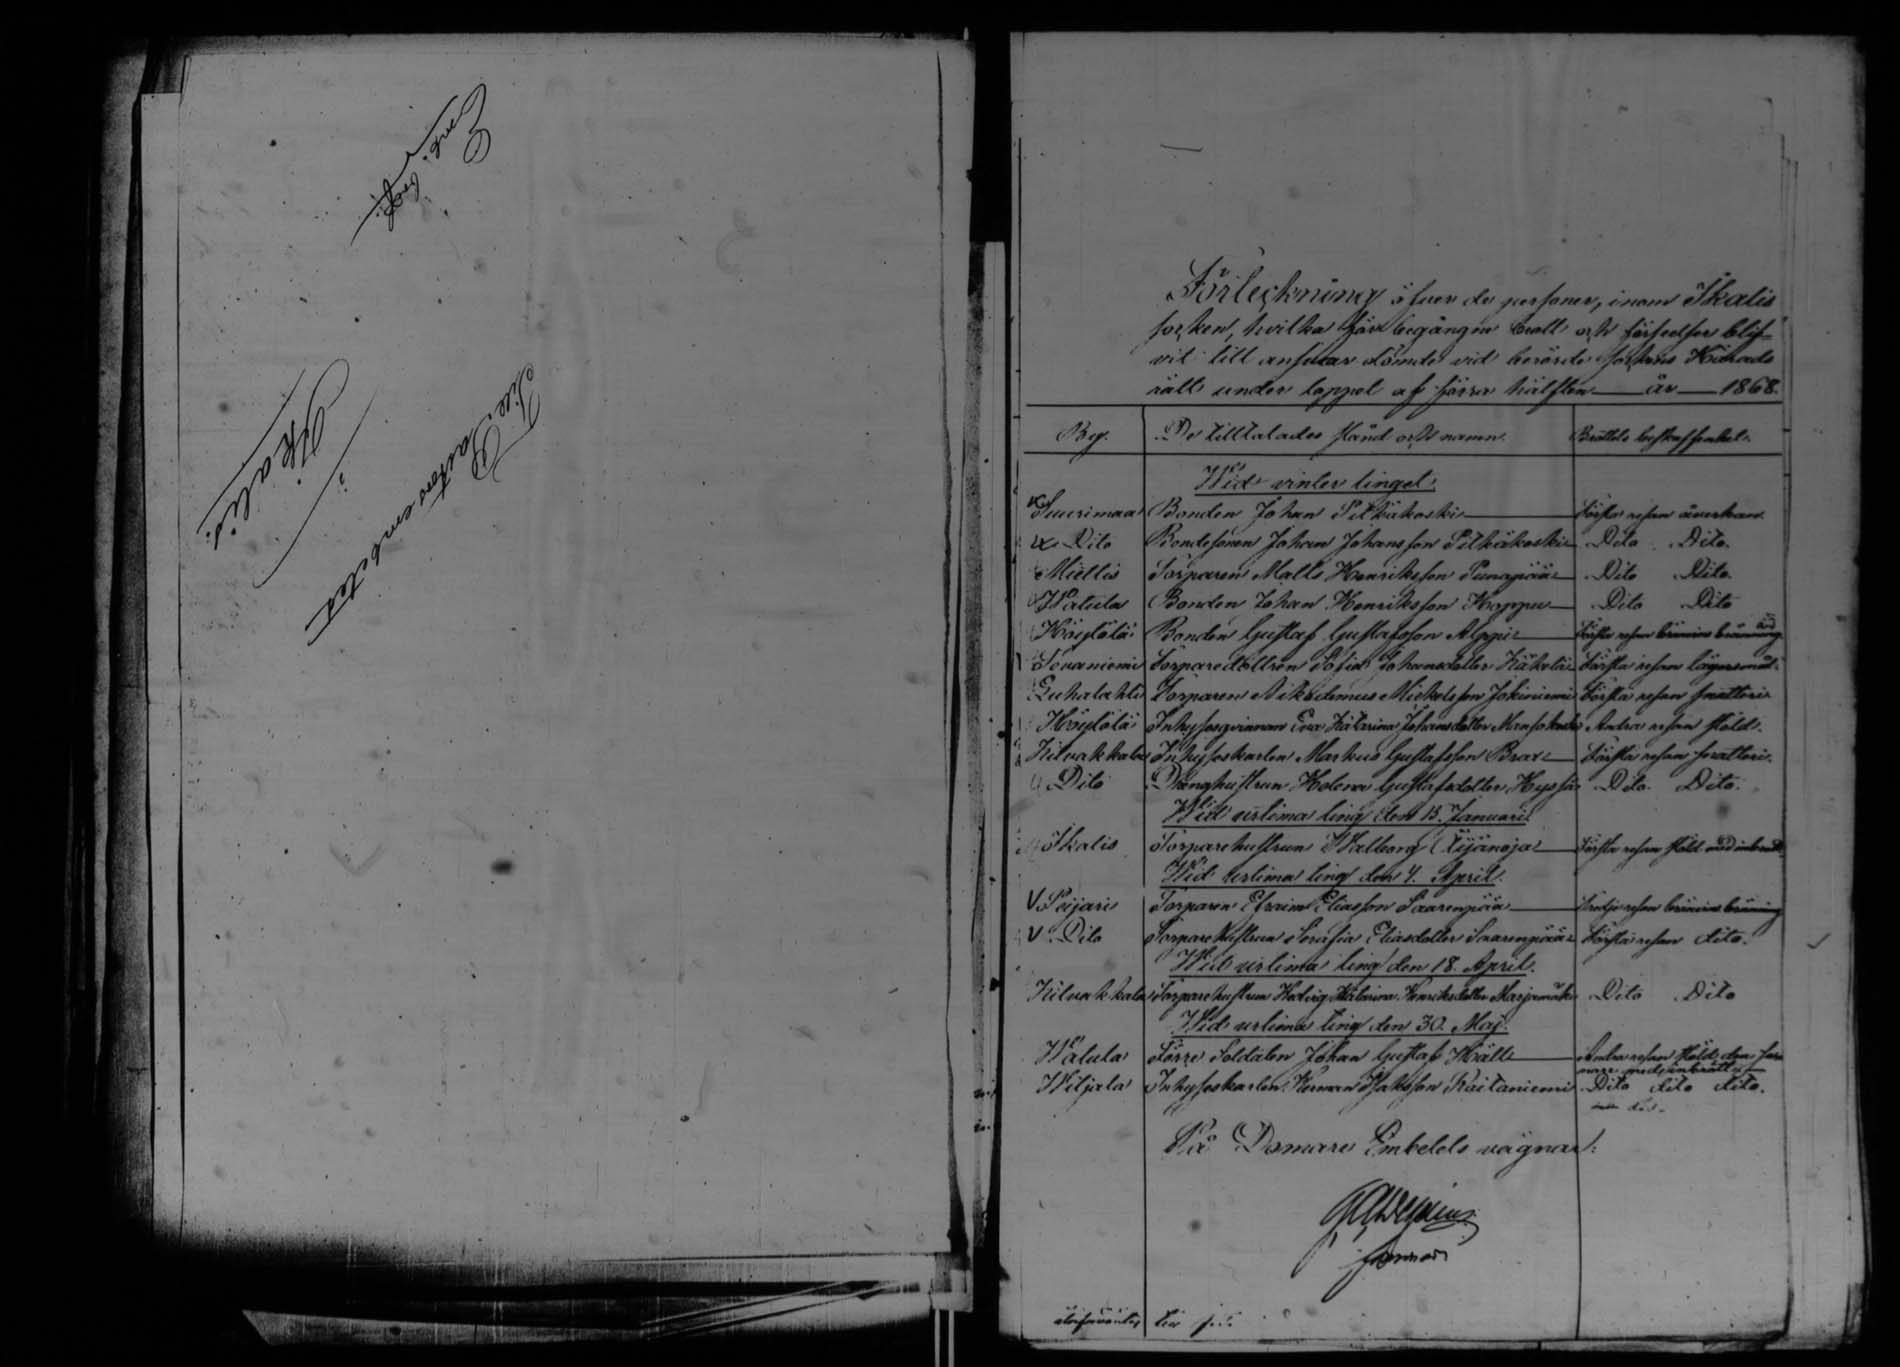 Till Pastors embetet
i
Ikalis.
Förteckning öfver de personer, inom Ikalis
socken, hvilka för begångne brott och förseelser blif-
vit till ansvar dömde vid berörde sockens Härads
rätt under loppet af förra hälften år 1868.
By. De tilltalades stånd och namn. Brottets beskaffenhet.
Wid vinter tinget.
Suurimaa Bonden Johan Pitkäkoski Första resan åverkan.
Dito Bondesonen Johan Johansson Pitkäkoski Dito Dito.
Miettis Torparen Matts Henriksson Punapää Dito Dito.
Watula Bonden Johan Henriksson Koppu Dito Dito
Höytölä Bonden Gustaf Gustafsson Alppi Första resan brännvins bränning
Tevaniemi Torparedottren Sofia Johansdotter Käkelä Första resan lägersmål.
Luhalahti Torparen Nikodemus Mickelsson Jokiniemi Första resan snatteri
Höytölä Inhysesqvinnan Eva Katarina Johansdotter Mansikoski Andra resan stöld.
Kilvakkala Inhyseskarlen Markus Gustafsson Brax Första resan snatteri.
Dito Dränghustrun Helena Gustafsdotter Hyssä Dito. Dito.
Wid urtima ting den 15. Januari.
Ikalis Torparehustrun Walborg Äijänoja Första resan stöld med inbrott
Wid urtima ting den 4. April.
Leijaris Torparen Efraim Eliasson Saarenpää Tredje resan brännvins bränning
Dito Torparehustrun Serafia Eliasdotter Saarenpää Första resan dito.
Wid urtima ting den 18. April.
Kilvakkala Torparehustrun Hedvig Katarina Henriksdotter Marjamäki Dito Dito
Wid urtima ting den 30. Maj.
Watula Förre Soldaten Johan Gustaf Häll Andra resan stöld, den
med inbrott
Wiljala Inhyseskarlen Herman Isaksson Raitaniemi Dito dito dito.
På Domare Embetets vägnar: